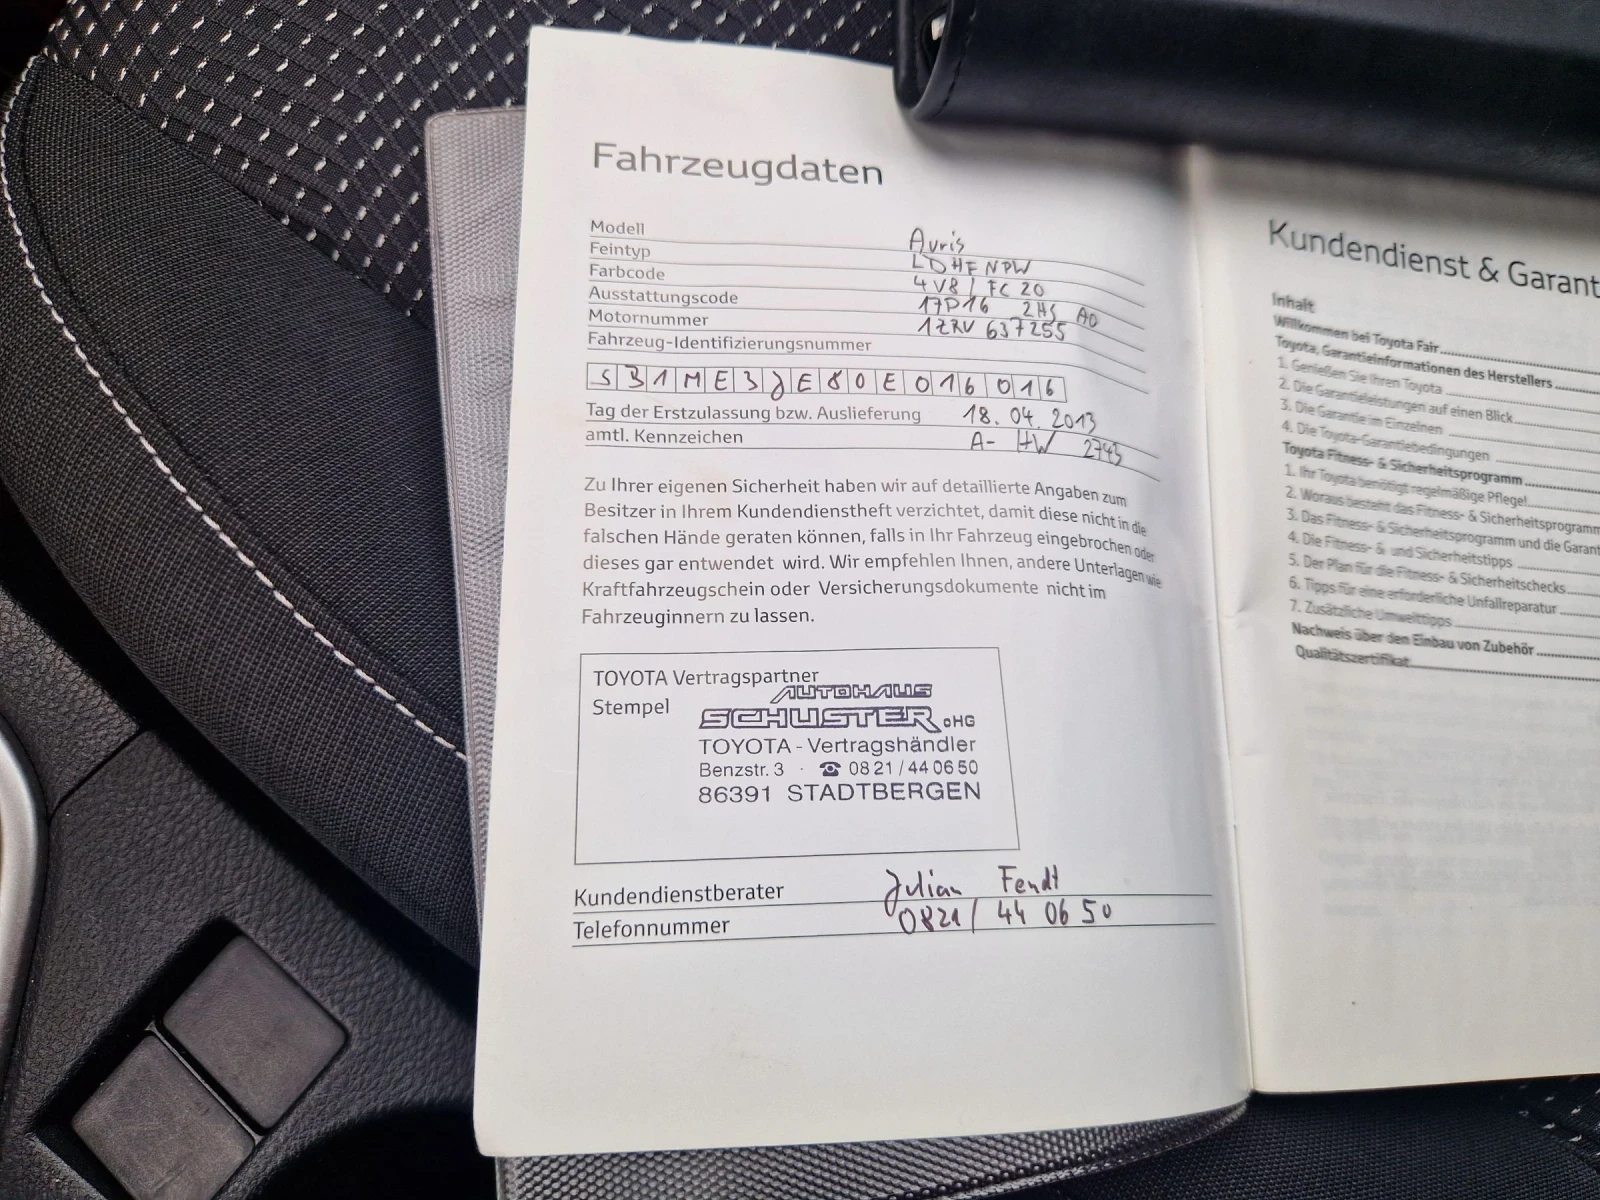 Fahrzeugdaten
Modell Auris
Feintyp LDHFNPW
Farbcode 4V8 / FC 20
Ausstattungscode 17P16 2HS A0
Motornummer 1ZRV 637255
Fahrzeug-Identifizierungsnummer
SB1ME3JE80E016016
Tag der Erstzulassung bzw. Auslieferung 18.04.2013
amtl. Kennzeichen A- HW 2743
Zu Ihrer eigenen Sicherheit haben wir auf detaillierte Angaben zum
Besitzer in Ihrem Kundendienstheft verzichtet, damit diese nicht in die
falschen Hände geraten können, falls in Ihr Fahrzeug eingebrochen oder
dieses gar entwendet wird. Wir empfehlen Ihnen, andere Unterlagen wie
Kraftfahrzeugschein oder Versicherungsdokumente nicht im
Fahrzeuginnern zu lassen.
TOYOTA Vertragspartner
Stempel
AUTOHAUS
SCHUSTER OHG
TOYOTA - Vertragshändler
Benzstr. 3 · ☎ 08 21 / 44 06 50
86391 STADTBERGEN
Kundendienstberater Julian Fendt
Telefonnummer 0821/ 44 06 50
Kundendienst & Garant
Inhalt
Willkommen bei Toyota Fair
Toyota, Garantieinformationen des Herstellers
1. Genießen Sie Ihren Toyota
2. Die Garantieleistungen auf einen Blick
3. Die Garantie im Einzelnen
4. Die Toyota-Garantiebedingungen
Toyota Fitness- & Sicherheitsprogramm
1. Ihr Toyota benötigt regelmäßige Pflege!
2. Woraus besteht das Fitness- & Sicherheitsprogramm
3. Das Fitness- & Sicherheitsprogramm und die Garant
4. Die Fitness- & und Sicherheitstipps
5. Der Plan für die Fitness- & Sicherheitschecks
6. Tipps für eine erforderliche Unfallreparatur
7. Zusätzliche Umwelttipps
Nachweis über den Einbau von Zubehör
Qualitätszertifikat